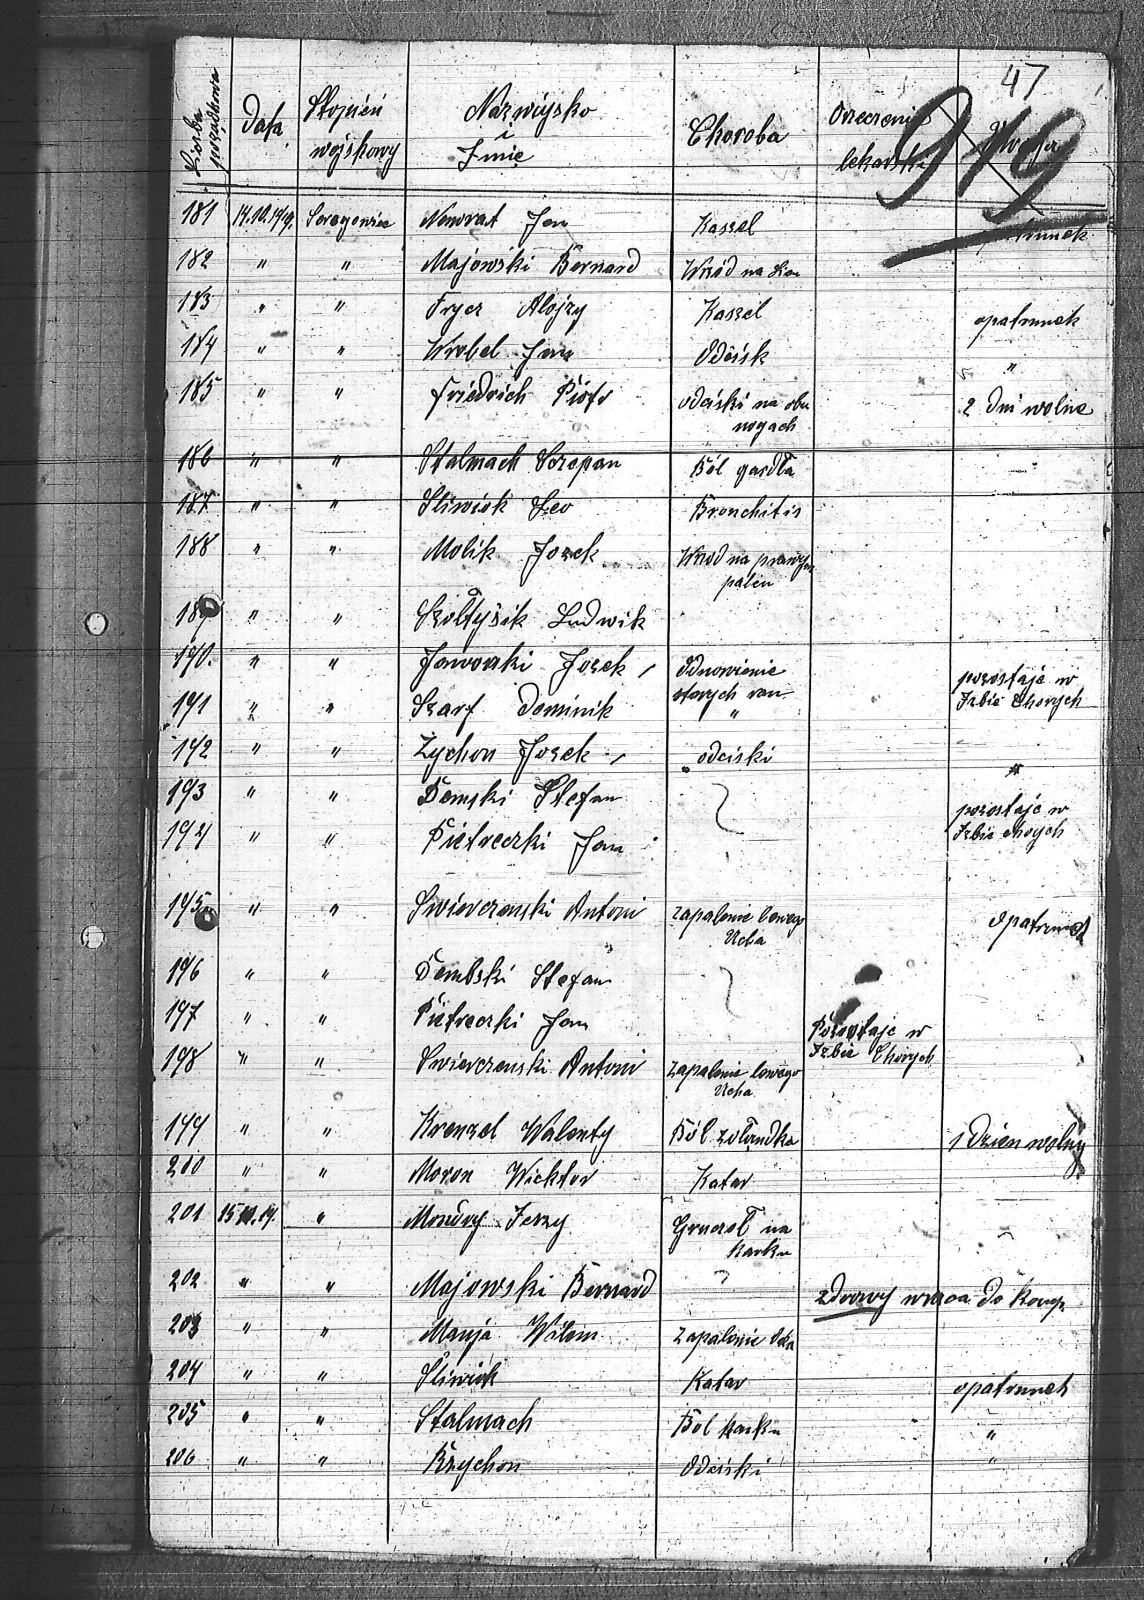 47
919
Liczba porządkowa Data Stopień wojskowy Nazwisko Imie Choroba Orzeczenie lekarskie Uwaga
181 14.10.1919. Szeregowiec Nowrat Jan Kaszel opatrunek
182 " " Majowski Bernard Wrzód na
183 " " Frycz Alojzy Kaszel opatrunek
184 " " Wrobel Jan Odcisk "
185 " " Friedrich Piotr odciski na obu 2 dni wolne
nogach
186 " " Stalmach Szczepan Ból gardła
187 " " Sliwiok Leo Bronchitis
188 " " Molik Jozek Wrzod na prawym
palcu
189 " " Szołtysik Ludwik
190. " " Jaworski Jozek Odnowienie pozostaje w
191 " " Szarf Dominik starych ran Izbie Chorych
"
192 " " Zychon Jozek odciski "
193 " " Demski Stefan pozostaje w
194 " " Pietreczki Jan Izbie chorych
195 " " Swierczenski Antoni Zapalenie lewego opatrunek
Ucha
196 " " Dembski Stefan
197 " " Pietreczki Jan Pozostaje w
198 " " Swierczenski Antoni Zapalenie lewego Izbie Chorych
Ucha
199 " " Krenzel Walenty Ból zołandka 1 dzien wolny
200 " " Moron Wicktor Katar
201 15 .19. " Mondry Jerzy Gruczoł na
Karku
202 " " Majowski Bernard zdrowy wraca do Komp.
203 " " Manja Wilem Zapalenie Oka
204 " " Sliwiok Katar opatrunek
205 " " Stalmach Bol Karku "
206 " " Krychon Odciski "